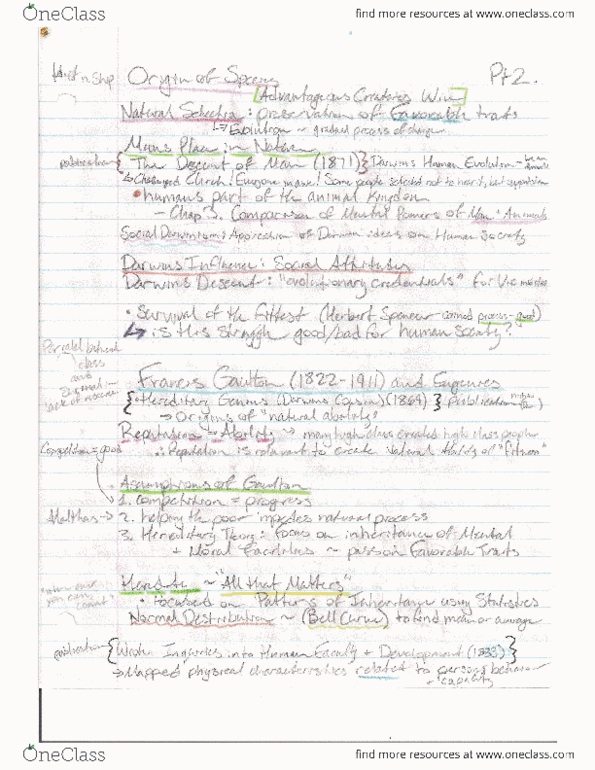 OneClass
find more resources at www.oneclass.com
Origin of Species
Pt 2.
[Advantageous Creatures Win]
Natural Selection: preservation of Favorable traits
↳ Evolution ~ gradual process of change
Mans Place in Nature
publication { The Descent of Man (1871) } Darwins Human Evolution -
humans part of the animal Kingdom
- Chap 3. Comparison of Mental Powers of Man + Animals
Social Darwinism: Application of Darwin ideas on Human Society
Darwins Influence: Social Attitudes
Darwins Descent: "evolutionary credentials" for the
• Survival of the fittest (Herbert Spencer - coined process - good)
↳ is this struggle good/bad for human society?
class
and
Francis Gaulton (1822-1911) and Eugenics
{ • Hereditary Genius (Darwins Cousin) (1869) } publication
→ Origins of "natural ability"
Reputation ~ Ability → many high class created high class people
Competition = good
∴ Reputation is relevant to create natural ability or "fitness"
Assumptions of Gaulton
1. competition = progress
Malthas → 2. helping the poor impedes natural process
3. Hereditary Theory: focus on inheritance of Mental
+ Moral Faculties ~ pass on Favorable Traits
~ "All that Matters"
"when ever you can, count"
• Focused on Patterns of Inheritance using Statistics
Normal Distribution ~ (Bell Curve) to find mean or average
publication { Wrote Inquiries into Human Faculty + Development (1883) }
→ Mapped physical characteristics related to persons behavior
+ capacity
OneClass
find more resources at www.oneclass.com